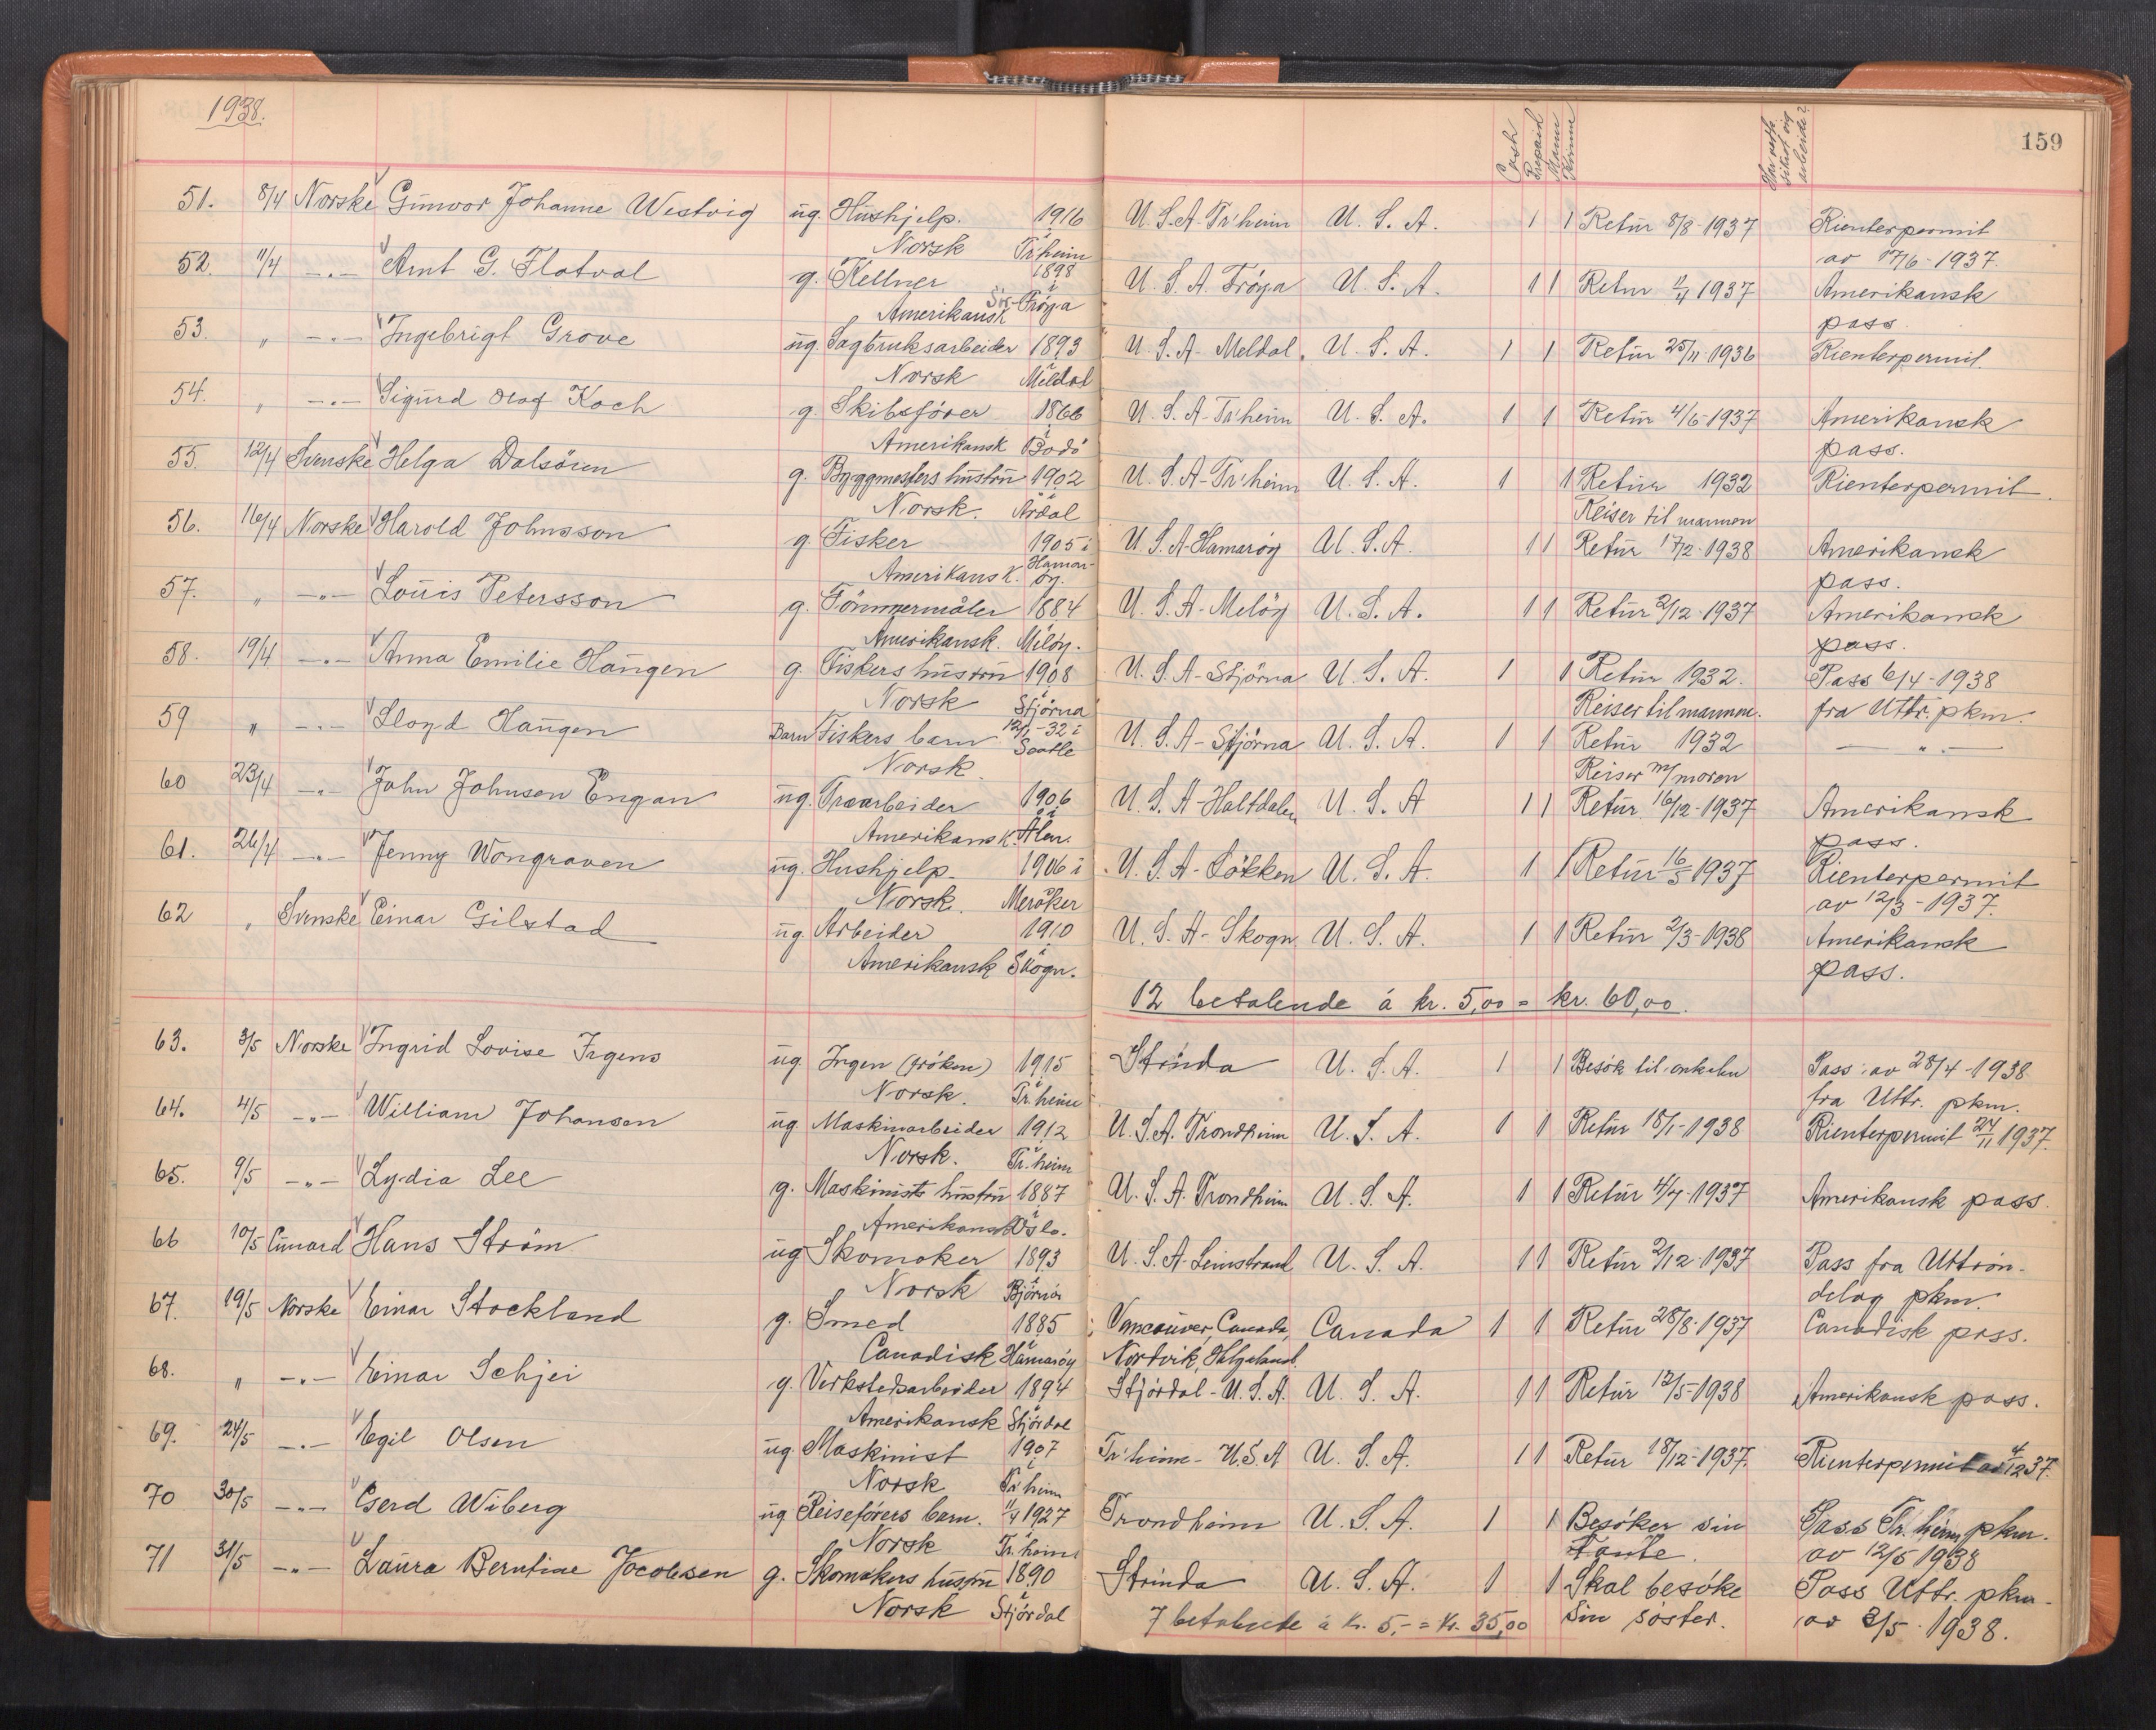 1938.
159
Cash Prepaid Mann Kvinne
51. 8/4 Norske Gunvor Johanne Westvig ug. Hushjelp. 1916 U.S.A-Tr'heim U.S.A. 1 1 Retur 8/8-1937 Rienterpermit
Norsk i Tr'heim av 17/6-1937.
52. 11/4 -„- Arnt G. Flatval g. Kellner 1898 U.S.A. Fröya U.S.A. 1 1 Retur 1937 Amerikansk
Amerikansk i Sör-Fröya pass.
53. „ -„- Ingebrigt Grove ug. Sagbruksarbeider 1893 U.S.A- Meldal. U.S.A. 1 1 Retur 25/11-1936 Rienterpermit.
Norsk i Meldal
54. „ -„- Sigurd Olaf Koch g. Skibsförer 1866 U.S.A-Tr'heim U.S.A. 1 1 Retur 4/6-1937 Amerikansk
Amerikansk i Bodö pass.
55. 12/4 Svenske Helga Dalsören g. Byggmesters hustru 1902 U.S.A-Tr'heim U.S.A. 1 1 Retur 1932 Rienterpermit.
Norsk. i Årdal Reiser til mannen
56. 16/4 Norske Harold Johnsson g. Fisker 1905 i U.S.A-Hamaröy U.S.A. 1 1 Retur 17/2-1938 Amerikansk
Amerikansk. Hamar-öy. pass.
57. „ -„- Louis Petersson g. Tömmermåler 1884 U.S.A-Melöy U.S.A. 1 1 Retur 2/12-1937 Amerikansk
Amerikansk. i Melöy. pass.
58. 19/4 -„- Anna Emilie Haugen g. Fiskers hustru 1908 U.S.A-Stjörna U.S.A. 1 1 Retur 1932. Pass 6/4-1938
Norsk i Stjörna Reiser til mannen. fra Uttr. pkm.
59 „ -„- Lloyd Haugen Barn Fiskers barn 12/1-32 i U.S.A-Stjörna U.S.A. 1 1 Retur 1932 -„-
Norsk. Seatle Reiser m/moren
60 23/4 -„- John Johnsen Engan ug. Trearbeider 1906 U.S.A-Haltdalen U.S.A 1 1 Retur 16/12-1937 Amerikansk
Amerikansk. i Ålen. pass.
61. 26/4 -„- Jenny Wongraven ug. Hushjelp. 1906 i U.S.A-Lökken U.S.A. 1 1 Retur 16/5 1937 Rienterpermit
Norsk. Meråker av 12/3-1937.
62 „ Svenske Einar Gilstad ug. Arbeider 1910 U.S.A-Skogn U.S.A. 1 1 Retur 2/3-1938 Amerikansk
Amerikansk i Skogn. pass.
12 betalende á kr. 5,00 = kr. 60,00.
63. 3/5 Norske Ingrid Lovise Irgens ug. Ingen (fröken) 1915 Strinda U.S.A. 1 1 Besök til onkelen Pass av 28/4-1938
Norsk. i Tr.heim fra Uttr. pkm.
64. 4/5 -„- William Johansen ug Maskinarbeider 1912 U.S.A. Trondheim U.S.A. 1 1 Retur 18/1-1938 Rienterpermit 24/11 1937.
Norsk. i Tr.heim
65. 9/5 -„- Lydia Lee g. Maskinists hustru 1887 U.S.A. Trondheim U.S.A. 1 1 Retur 4/7-1937 Amerikansk pass.
Amerikansk i Oslo.
66 10/5 Cunard Hans Ström ug Skomaker 1893 U.S.A-Leinstrand U.S.A. 1 1 Retur 2/12-1937 Pass fra Uttrön-
Norsk i Björnör delag pkm.
67. 19/5 Norske Einar Stockland g. Smed 1885 Vancouver, Canada, Canada 1 1 Retur 28/8-1937 Canadisk pass.
Canadisk i Hamaröy Nordvik, Helgeland.
68. „ -„- Einar Schjei g. Verkstedsarbeider 1894 Stjördal-U.S.A. U.S.A. 1 1 Retur 12/5-1938 Amerikansk pass.
Amerikansk i Stjördal
69. 24/5 -„- Egil Olsen ug. Maskinist 1907 Tr'heim-U.S.A U.S.A. 1 1 Retur 18/12-1937. Rienterpermit av 4/12 37.
Norsk i Tr'heim
70 30/5 -„- Gerd Wiberg ug Reiseförers barn. 11/4 1927 Trondheim U.S.A. 1 1 Besöker sin Pass Tr.heim pkm.
Norsk i Tr.heim tante. av 12/5 1938
71 31/5 -„- Laura Berntine Jacobsen g. Skomakers hustru 1890 Strinda U.S.A. 1 1 Skal besöke Pass Uttr. pkm.
Norsk i Stjördal 7 betalende á kr. 5,- = kr. 35,00 sin söster. av 3/5-1938.